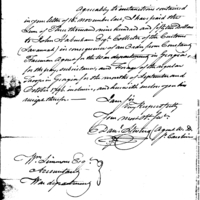 Agreeably to instructions contained
in your letter of November last, I have paid the
Sum of Three thousand nine hundred and fifty Dollars
to John Habersham Esqr Collector of the Customs
(Savannah) in consequence of an Order from Constant
Freeman Agent for the War department in Georgia,
for the pay, subsistence, and forage of the regular
troops in Georgia for the months of September and
October 1796 inclusive, and herewith enclose you
receipt therefor
I am Sir
Very Respectfully
Your most Obt Servt
Danl Stevens Agent
Carolina
Wm Simmons Esqr
Accountant
War department